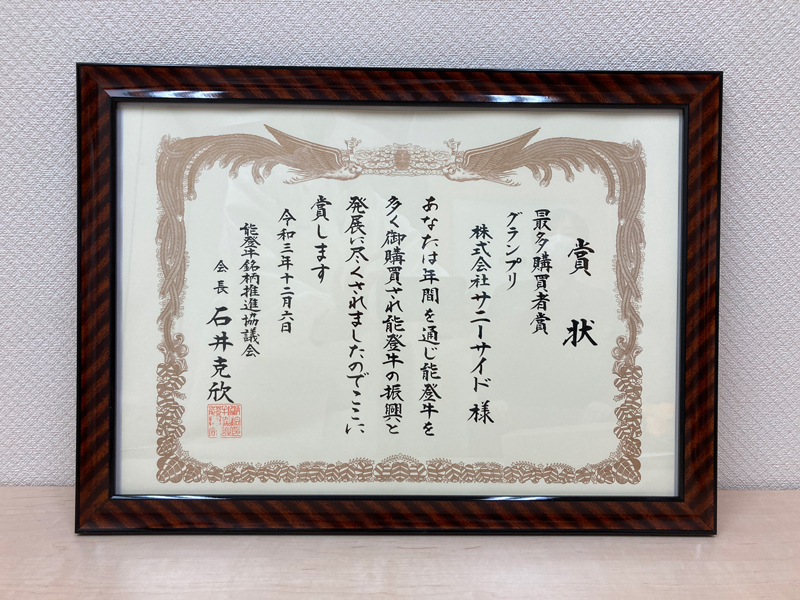 賞状
最多購買者賞
グランプリ
株式会社サニーサイド 様
あなたは年間を通じ能登牛を
多く御購買され能登牛の振興と
発展に尽くされましたのでここに
賞します
令和三年十二月六日
能登牛銘柄推進協議会
会長 石井克欣